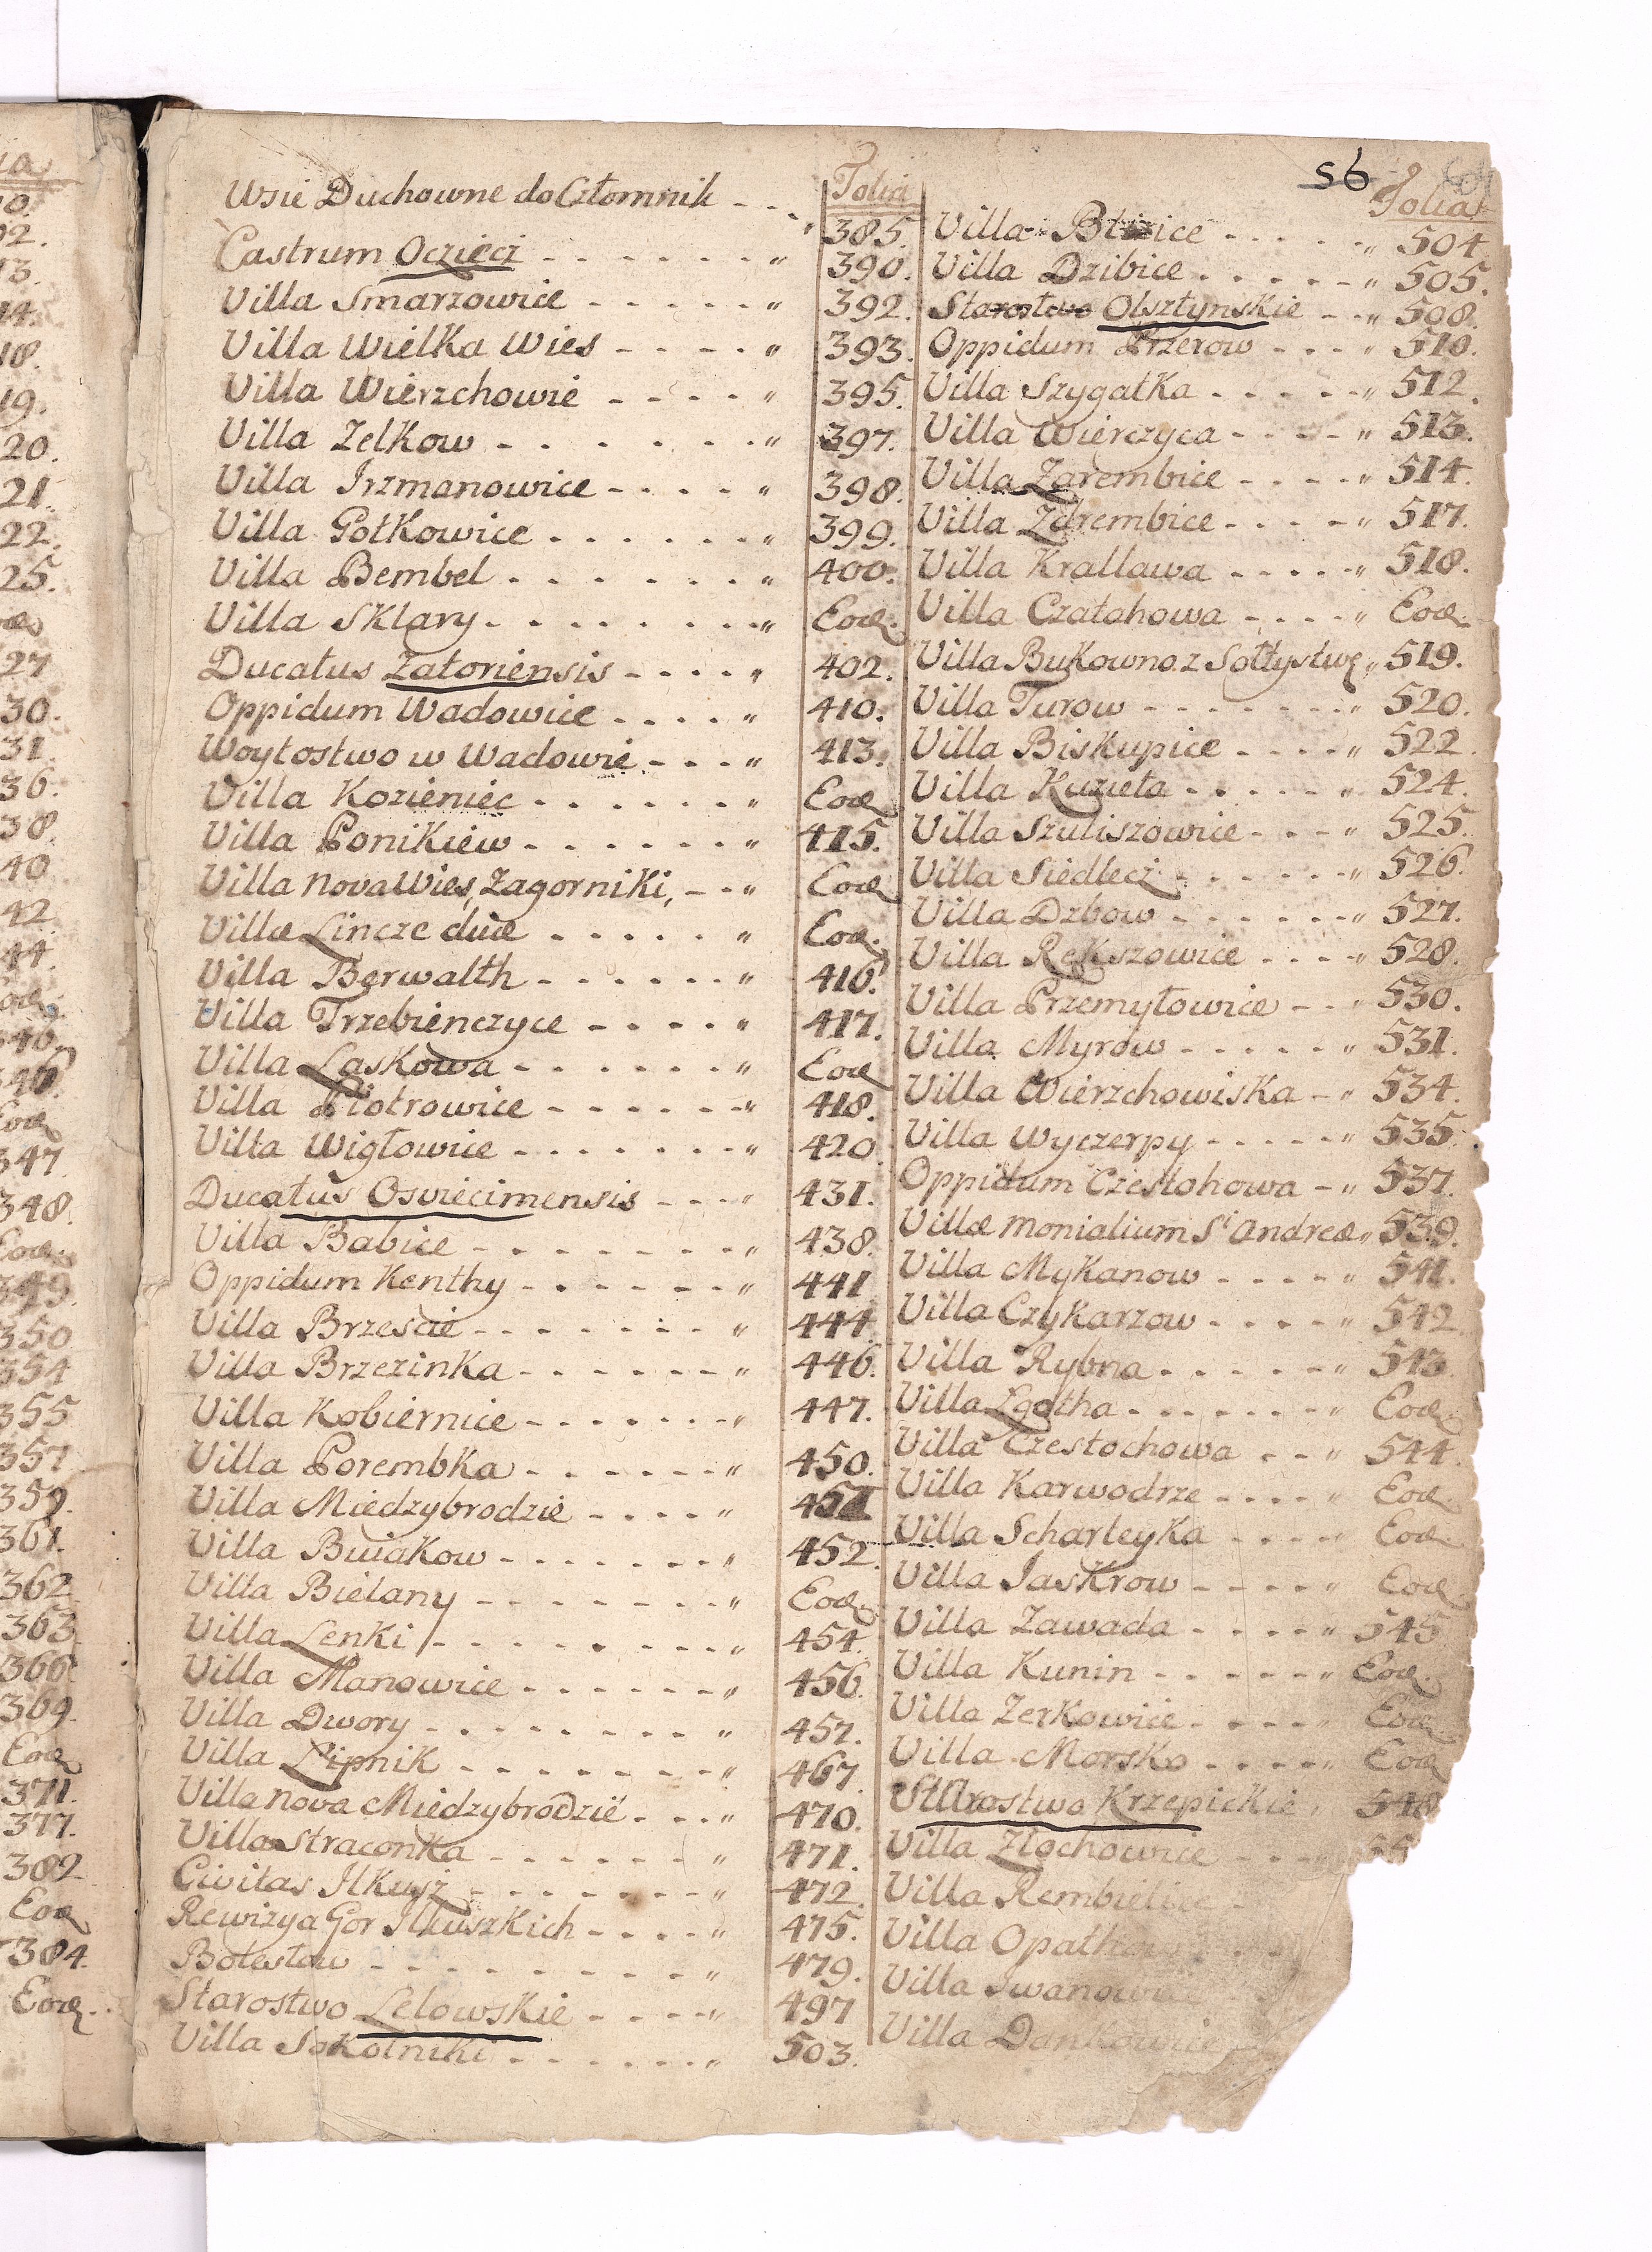 56
Folia
Wsie Duchowne do Człomnik - - - „ 385.
Castrum Oczieci - - - - - - - „ 390.
Villa Smarzowice - - - - - „ 392.
Villa Wielka Wies - - - - „ 393.
Villa Wierzchowie - - - - „ 395.
Villa Zelkow - - - - - - - „ 397.
Villa Irzmanowice - - - - „ 398.
Villa Gotkowice - - - - - - „ 399.
Villa Bembel - - - - - - - „ 400.
Villa Sklary - - - - - - - - „ Eod.
Ducatus Zatoriensis - - - - „ 402.
Oppidum Wadowice - - - - „ 410.
Woytostwo w Wadowie - - - „ 413.
Villa Kozieniec - - - - - - „ Eod
Villa Ponikiew - - - - - - „ 415.
Villa Nova Wies, Zagorniki, - - „ Eod
Villæ Lincze duæ - - - - - „ Eod.
Villa Berwalth - - - - - - „ 416.
Villa Trzebienczyce - - - - „ 417.
Villa Laskowa - - - - - - „ Eod
Villa Piotrowice - - - - - „ 418.
Villa Wigłowice - - - - - - - „ 420
Ducatus Osviecimensis - - - „ 431.
Villa Babice - - - - - - - „ 438.
Oppidum Kenthy - - - - - - „ 441
Villa Brzescie - - - - - - - „ 444
Villa Brzezinka - - - - - - „ 446.
Villa Kobiernice - - - - - - „ 447.
Villa Porembka - - - - - - „ 450.
Villa Miedzybrodzie - - - - „ 451
Villa Bujakow - - - - - - - „ 452.
Villa Bielany - - - - - - - „ Eod.
Villa Lenki - - - - - - - - „ 454.
Villa Manowice - - - - - - „ 456.
Villa Dwory - - - - - - - - „ 457.
Villa Lipnik - - - - - - - - „ 467
Villa nova Miedzybrodzie - - - „ 470.
Villa Straconka - - - - - - „ 471.
Civitas Ilkusz - - - - - - - „ 472.
Rewizya Gor Ilkuszkich - - - - „ 475.
Bolesław - - - - - - - - - „ 479.
Starostwo Lelowskie - - - - „ 497
Villa Sokolniki - - - - - - „ 503.
Folia
Villa - - - - - „ 504
Villa Dzibice - - - - - „ 505.
Starostwo Olsztynskie - - „ 508.
Oppidum Przerow - - - „ 510.
Villa Szygatka - - - - - „ 512.
Villa Wierczyca - - - - „ 513.
Villa Zarembice - - - - „ 514.
Villa Zdrembice - - - - „ 517.
Villa Krallawa - - - - - „ 518.
Villa Czatahowa - - - - „ Eod.
Villa Bukowno z Sołtystwę „ 519.
Villa Turow - - - - - - - „ 520.
Villa Biskupice - - - - „ 522.
Villa Kuzieta - - - - - „ 524.
Villa Szuliszowice - - - „ 525.
Villa Siedlecz - - - - - - „ 526.
Villa Dzbow - - - - - - „ 527.
Villa Rekszowice - - - - „ 528.
Villa Przemyłowice - - - „ 530.
Villa Myrow - - - - - - „ 531.
Villa Wierzchowiska - - „ 534.
Villa Wyczerpy - - - - - „ 535.
Oppidum Czestohowa - „ 537.
Villæ monialium S^i Andreæ „ 539.
Villa Mykanow - - - - „ 541.
Villa Czykarzow - - - - „ 542.
Villa Rybna - - - - - - „ 543
Villa Lgotha - - - - - - - „ Eod.
Villa Czestochowa - - - „ 544.
Villa Karwodrze - - - - „ Eod.
Villa Scharleyka - - - - „ Eod.
Villa Jaskrow - - - - „ Eod
Villa Zawada - - - - „ 545
Villa Kunin - - - - - - „ Eod.
Villa Zerkowice - - - - „ Eod.
Villa Morsko - - - - - „ Eod
Starostwo Krzepickie „ 548
Villa Zlochowice - - - „ 55
Villa Rembielice -
Villa Opatkow
Villa Iwanowice
Villa Dankowice
ia
27
30.
31.
36.
38.
40
42
44.
347
348.
Eod.
349.
350
354
355
357
359.
361.
362
363
366
369.
Eod
371.
377.
382
Eod
384.
Eod.